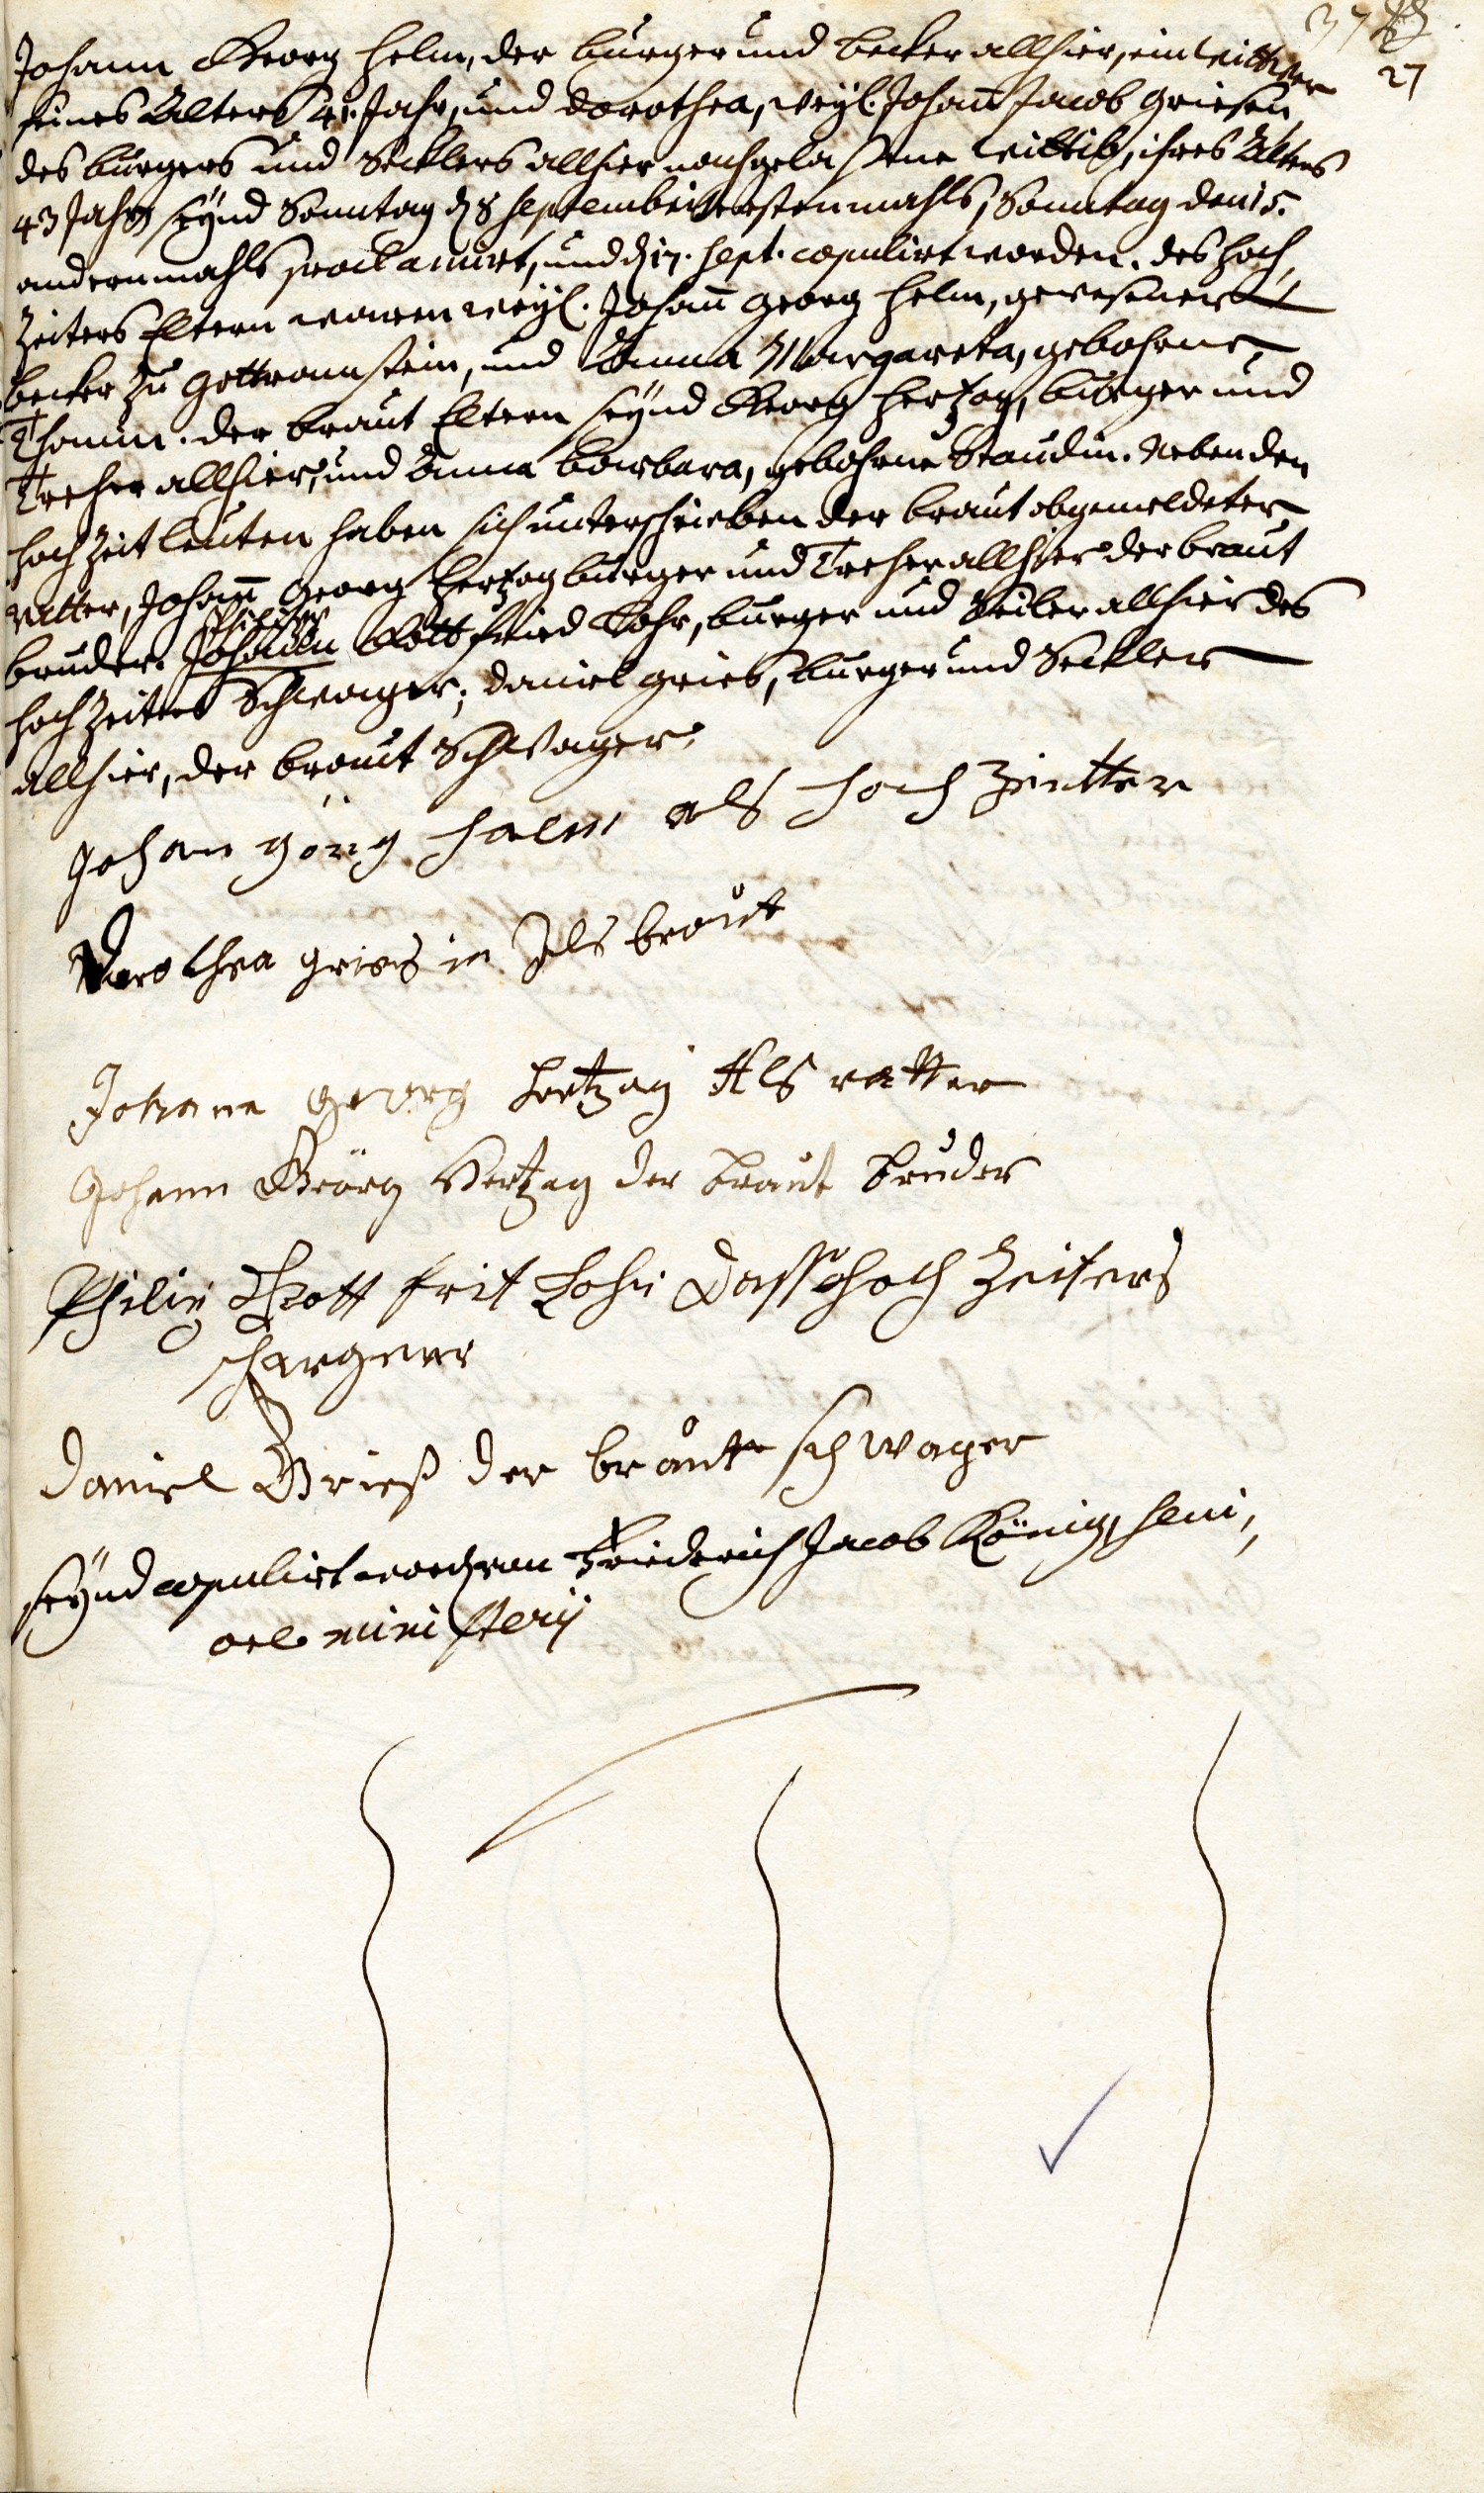 37
27
Johann Georg Helm, der burger und becker allhier, ein Wittwer
seines Alters 41. Jahr, und Dorothea, weyl. Johan̄ Jacob Griesen,
des burgers und Secklers allhier nachgelaßene Wittib, ihres Alters
43 Jahr seynd Sonntag d. 8 Septembris erstenmahls, Sonntag den 15.
andernmahls proclamirt, und d. 17. Sept. copulirt worden. des Hoch,
zeiters Eltern waren weyl. Johan̄ Georg Helm, gewesener
becker zu, und Anna Margareta, gebohrne
der braut Eltern seynd Georg Hertzog, burger und
Treher allhier, und Anna Barbara, gebohrne Staudin. Neben den
Hochzeitleuten haben sich unterschrieben der braut obgemeldeter
Vatter, Johan̄ Georg Hertzog burger und Treher allhier der braut
Philipp
bruder. Johann Gottfried Lohr, burger und Seiler allhier des
Hochzeiters Schwager; Daniel Gries, burger und Seckler
allhier, der braut Schwager.
Johan Görg Helm als Hoch Zeitter
Dorothea Griesin Als braut
Johann Georg Hertzog Als vatter
Johann Geörg Hertzog der braut bruder
Philip Gott frit Lohr Hoch Zeiters
Daniel Grieß der braut schwager
seynd copulirt worden von Friederich Jacob König, Seni,
ore ministerij